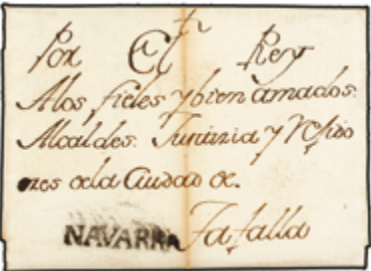 Por El Rey
A los fieles y bien amados
Alcaldes Justizia y Rexido
res de la Ciudad de.
NAVARRA Tafalla